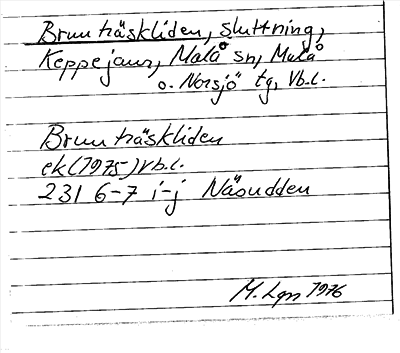 Brunträskliden, sluttning,
Keppejaur, Malå sn, Malå
o. Norsjö tg, Vb.l.
Brunträskliden
ek (1975) Vb.l.
231 6-7 i-j Näsudden
M. Lgn 1976